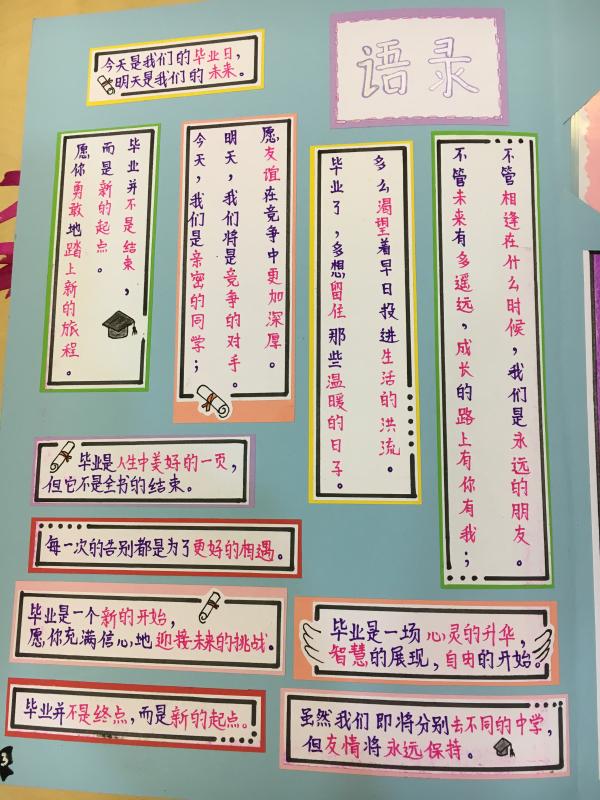 语录
今天是我们的毕业日，
明天是我们的未来。
毕业并不是结束，
而是新的起点。
愿你勇敢地踏上新的旅程。
今天，我们是亲密的同学；
明天，我们将是竞争的对手。
愿友谊在竞争中更加深厚。
毕业了，多想留住那些温暖的日子。
多么渴望着早日投进生活的洪流。
不管未来有多遥远，成长的路上有你有我；
不管相逢在什么时候，我们是永远的朋友。
毕业是人生中美好的一页，
但它不是全书的结束。
每一次的告别都是为了更好的相遇。
毕业是一个新的开始，
愿你充满信心地迎接未来的挑战。
毕业是一场心灵的升华，
智慧的展现，自由的开始。
毕业并不是终点，而是新的起点。
虽然我们即将分别去不同的中学，
但友情将永远保持。
3